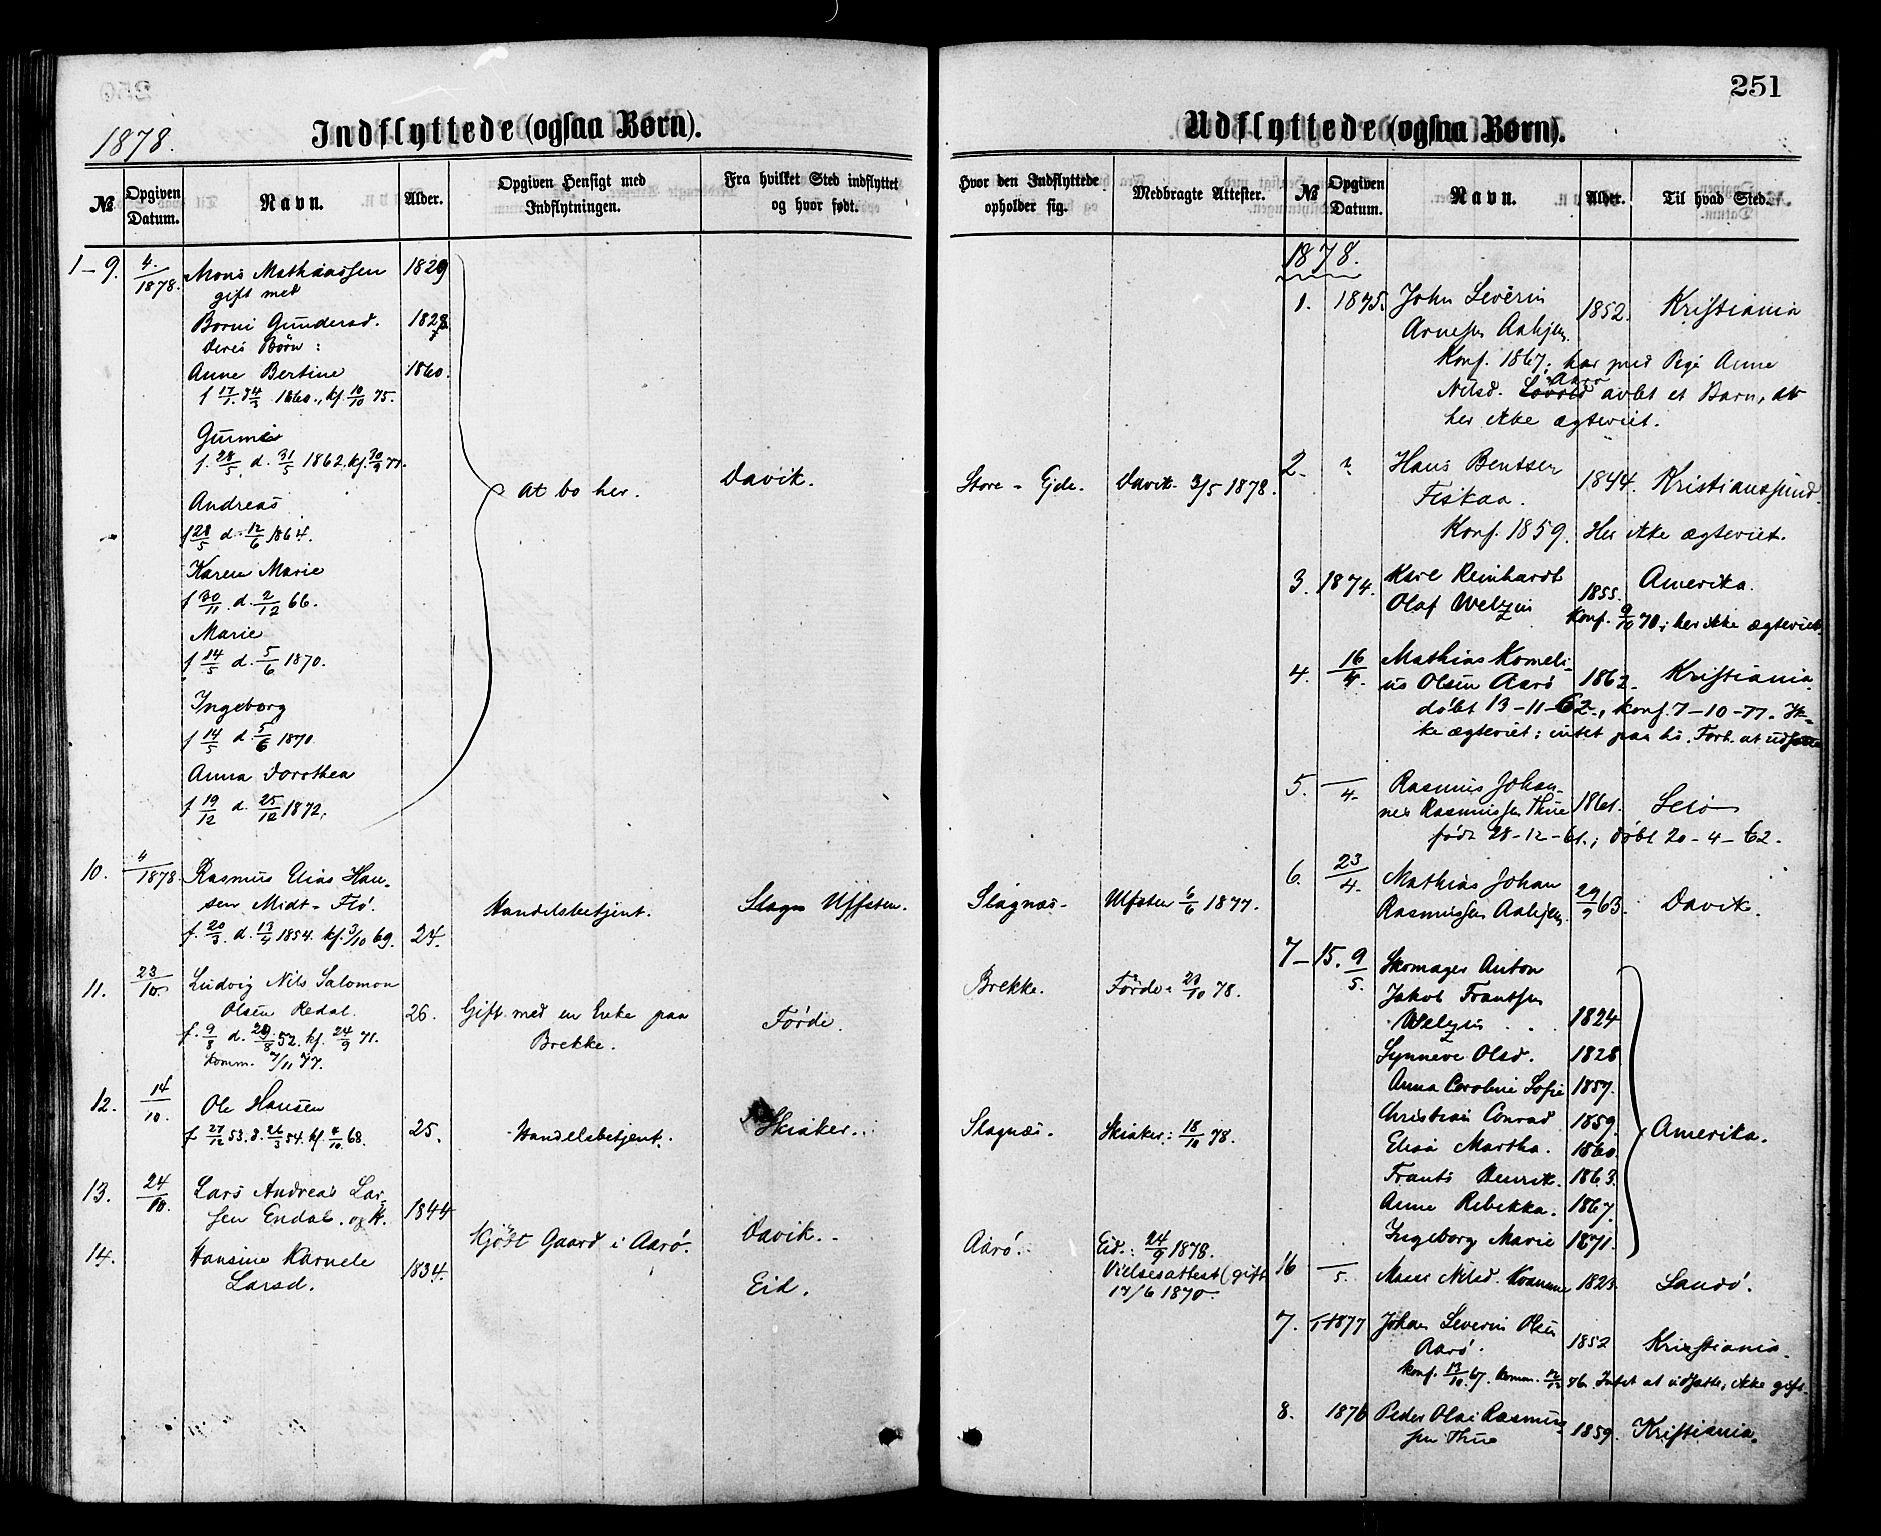 251
1878.
Indflyttede (ogsaa Børn).
№
Opgiven Datum.
Navn.
Alder.
Opgiven Hensigt med Indflytningen.
Fra hvilket Sted indflyttet og hvor født.
Hvor den Indflyttede opholder sig.
Medbragte Attester.
1-9. 4./1878. Mons Mathiassen 1829
gift med
Borni Gundersd. 1828
deres Børn:
Anne Bertine 1860.
1860., kf. 10/10 75.
f. 28/5 d. 31/5 1862. kf. 30/9 77.
Andreas
f 28/5 d. 12/6 1864.
Karen Marie
f 30/11 d. 2/12 66.
Marie
f 14/5 d. 5/6 1870.
Ingeborg
f 14/5 d. 5/6 1870
Anna Dorothea
f 19/12 d. 25/12 1872.
At bo her. Davik. Store-Ejde. Davik 3/5 1878.
10. 4/1878. Rasmus Elias Han-
sen Midt-Flö.
f. 20/3. d. 13/4 1854. kf. 3/10 69. 24.
Handelsbetjent. Ulfsten. Slagnæs. Ulfsten 6/6 1877.
11. 23/10. Ludvig Nils Salomon
Olsen Redal. 26.
f. 9/8 d. 29/8 52. kf. 24/9 71.
Komm. 4/11 77.
Gift med en Enke paa
Brekke.
Förde. Brekke. Förde: 20/10 78.
12. 14/10. Ole Hansen
f 27/12 53. d. 26/3 54. kf 4/10 68. 25.
Handelsbetjent. Skiaker. Slagnæs. Skiaker: 18/10 78.
13. 24/10. Lars Andreas Lar-
sen Endal. og H. 1844
Kjöbt Gaard i Aarö. Davik. Aarö. Eid.: 24/9 1878.
14. Hansine Karnele
Larsd. 1834. Eid.
Vielsesattest (gift
17/6 1870.
Udflyttede (ogsaa Børn).
№
Opgiven Datum.
Navn.
Alder.
Til hvad Sted.
1878.
1. 1875. John Severin
Arnesen Aahjem 1852. Kristiania
Konf. 1867; har med Pige Anne
Nilsd. avlet et Barn, er
her ikke ægteviet.
2. Hans Bentsen
Fiskaa. 1844. Kristianssund.
Konf. 1859. Her ikke ægteviet.
3. 1874. Karl Reinhardt
Olaf Welzin 1855. Amerika.
Konf. 9/10 70; her ikke ægteviet
4. 16/4. Mathias Korneli-
us Olsen Aarö 1862. Kristiania.
döbt 13-11-62., konf. 7-10-77. Ik-
ke ægteviet; intet paa hs. Forh. at udsætte
5. /4. Rasmus Johan-
nes Rasmussen Thue 1861.
född 28-12-61.; döbt 20-4-62.
6. 23/4. Mathias Johan
Rasmussen Aahjem 29/9 63. Davik.
7-15. 9/5. Skomager Anton
Jakob Frantsen
Welzin 1824
Synneve Olsd. 1828
Anna Caroline Sofie 1857.
Christian Conrad 1859.
Elisa Martha. 1860.
Frants Henrik. 1863.
Anne Rebekka. 1867.
Ingeborg Marie 1871.
Amerika.
16 /5. Nilsd. Kvamme 1823. Sandö.
7. 1877 Johan Severin Olsen
Aarö. 1852 Kristiania.
Konf. 13/10 67. Komm. 76. Intet at udsætte, ikke gift.
8. 1876 Peder Olai Rasmus-
sen Thue 1859. Kristiania.